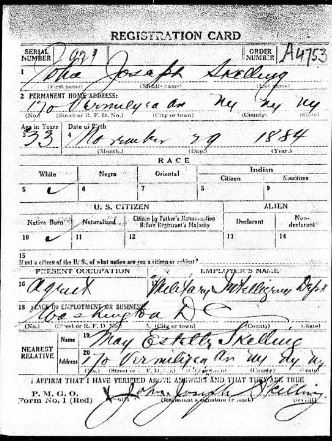 REGISTRATION CARD
SERIAL NUMBER 921 ORDER NUMBER A4753
1 John Joseph Skelling
(First name) (Middle name) (Last name)
2 PERMANENT HOME ADDRESS:
170 Vermilyea Av NY NY NY
(No.) (Street or R. F. D. No.) (City or town) (County) (State)
Age in Years Date of Birth
33 November 29 1884
(Month.) (Day.) (Year.)
RACE
White Negro Oriental Indian
Citizen Noncitizen
5 ✓ 6 7 8 9
U. S. CITIZEN ALIEN
Native Born Naturalized Citizen by Father's Naturalization Before Registrant's Majority Declarant Non-declarant
10 ✓ 11 12 13 14
15
If not a citizen of the U. S., of what nation are you a citizen or subject?
PRESENT OCCUPATION EMPLOYER'S NAME
16 Agent Military Intelligence Dept
18 PLACE OF EMPLOYMENT OR BUSINESS:
Washington D C
(No.) (Street or R. F. D. No.) (City or town) (County) (State)
NEAREST RELATIVE Name 19 May Estelle Skelling
Address 20 170 Vermilyea Av NY NY NY
(No.) (Street or R. F. D. No.) (City or town) (County) (State)
I AFFIRM THAT I HAVE VERIFIED ABOVE ANSWERS AND THAT THEY ARE TRUE
P. M. G. O.
Form No. 1 (Red) John Joseph Skelling
(Registrant's signature or mark)